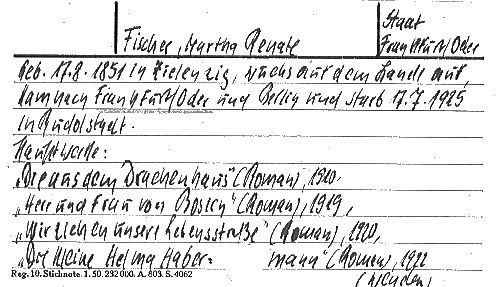 Staat
Fischer, Martha Renate Frankfurt/Oder
Geb. 17.8.1851 in Zielenzig, wuchs auf dem Lande auf,
kam nach Frankfurt/Oder und Berlin und starb 17.7.1925
in Rudolstadt.
Hauptwerke:
"Die aus dem Drachenhaus" (Roman), 1910.
"Herr und Frau von (Roman), 1919,
"Wir ziehen unsere Lebensstraße" (Roman), 1920,
"Die kleine Helma Habermann" (Roman), 1922
Reg. 10. Stichnote. 1. 50. 232 000. A. 803. S. 4062
(wenden)